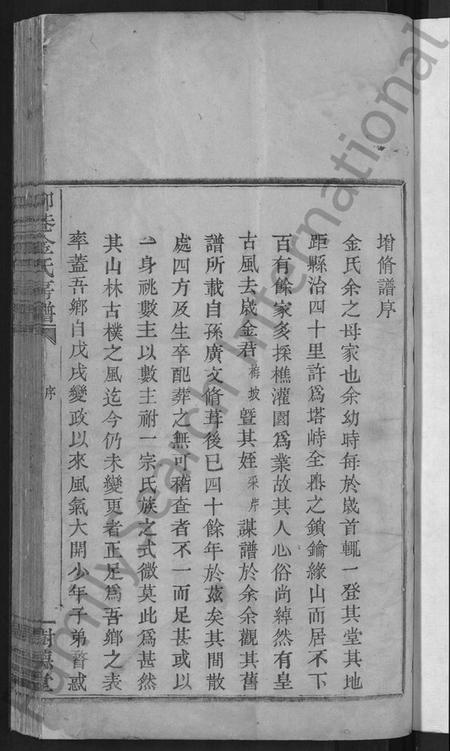 增脩譜序
金氏余之母家也余幼時每於歲首輒一登其堂其地
距縣治四十里許爲塔峙全縣之鎖鑰緣山而居不下
百有餘家多採樵灌園爲業故其人心俗尚綽然有皇
古風去歲金君 坡曁其姪采岸謀譜於余余觀其舊
譜所載自孫廣文脩葺後已四十餘年於茲矣其間散
處四方及生卒配葬之無可稽查者不一而足甚或以
一身祧數主以數主祔一宗氏族之式微莫此爲甚然
其山林古樸之風迄今仍未變更者正足爲吾鄉之表
率蓋吾鄉自戊戌變政以來風氣大開少年子弟瞀惑
金氏 譜
序
堂
FamilySearch International